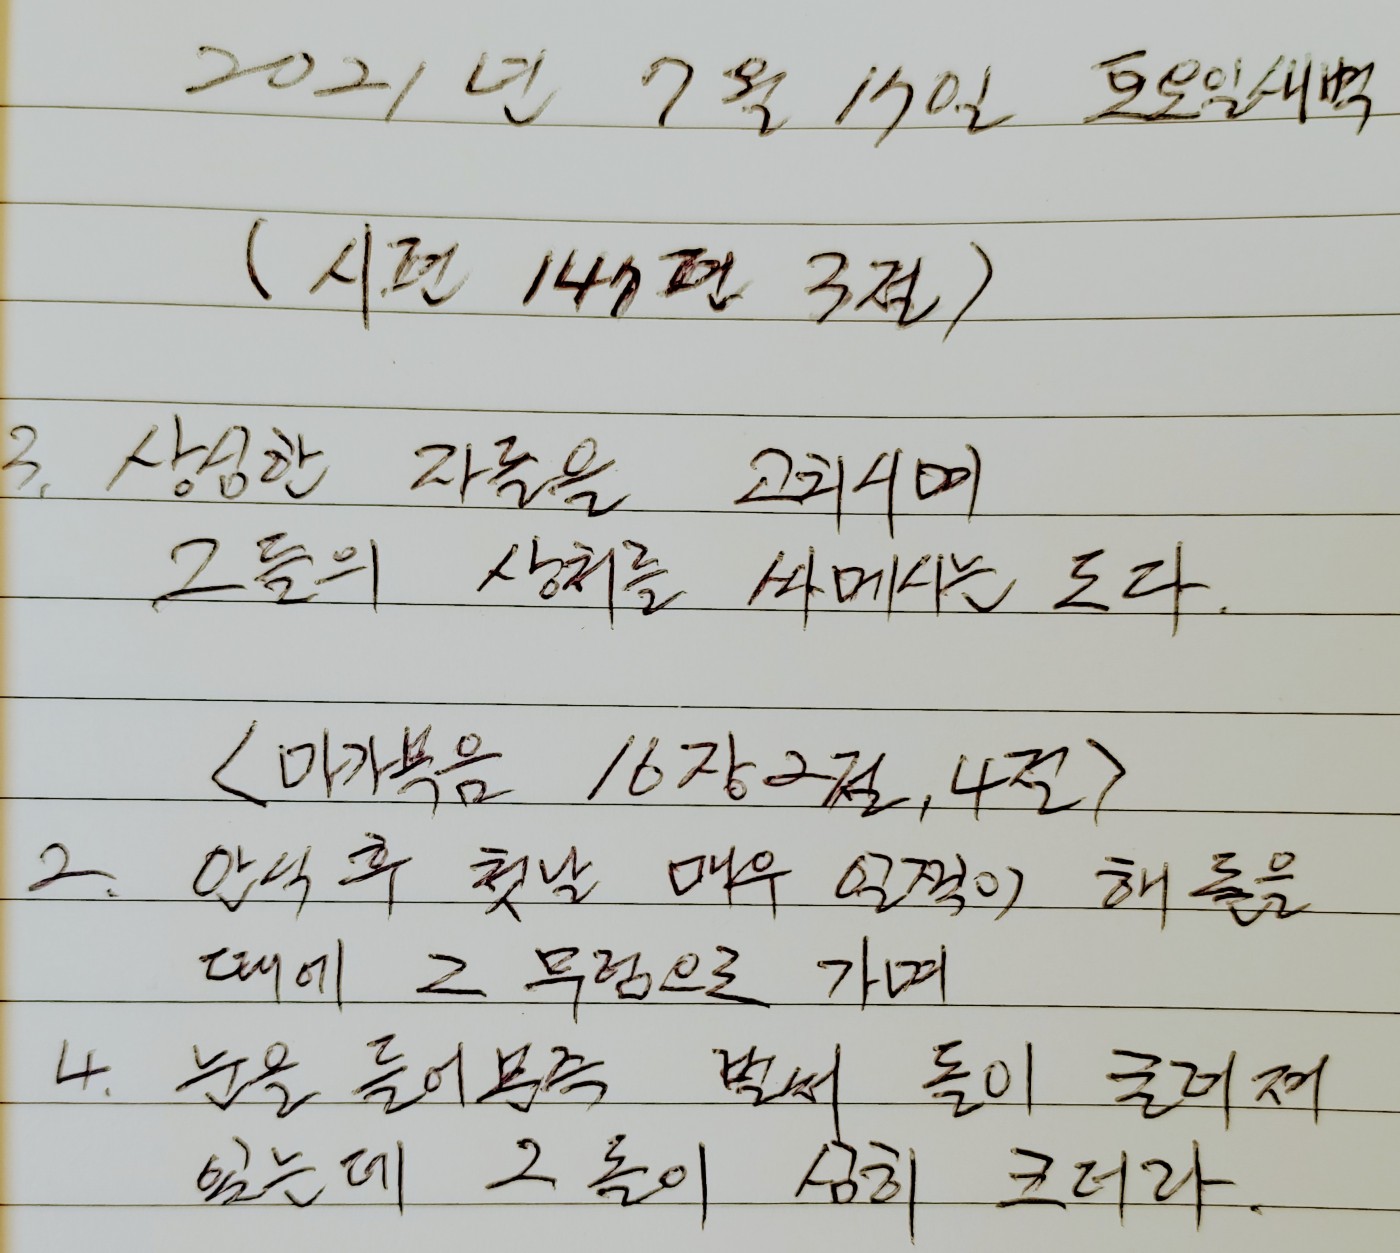 2021년 7월 17일 토요일새벽
(시편 147편 3절)
3. 상심한 자들을 고치시며
그들의 상처를 싸메시는 도다.
<마가복음 16장2절, 4절>
2. 안식 후 첫날 매우 일찍이 해 돋을
때에 그 무덤으로 가며
4. 눈을 들어본즉 벌써 돌이 굴려져
있는데 그 돌이 심히 크더라.